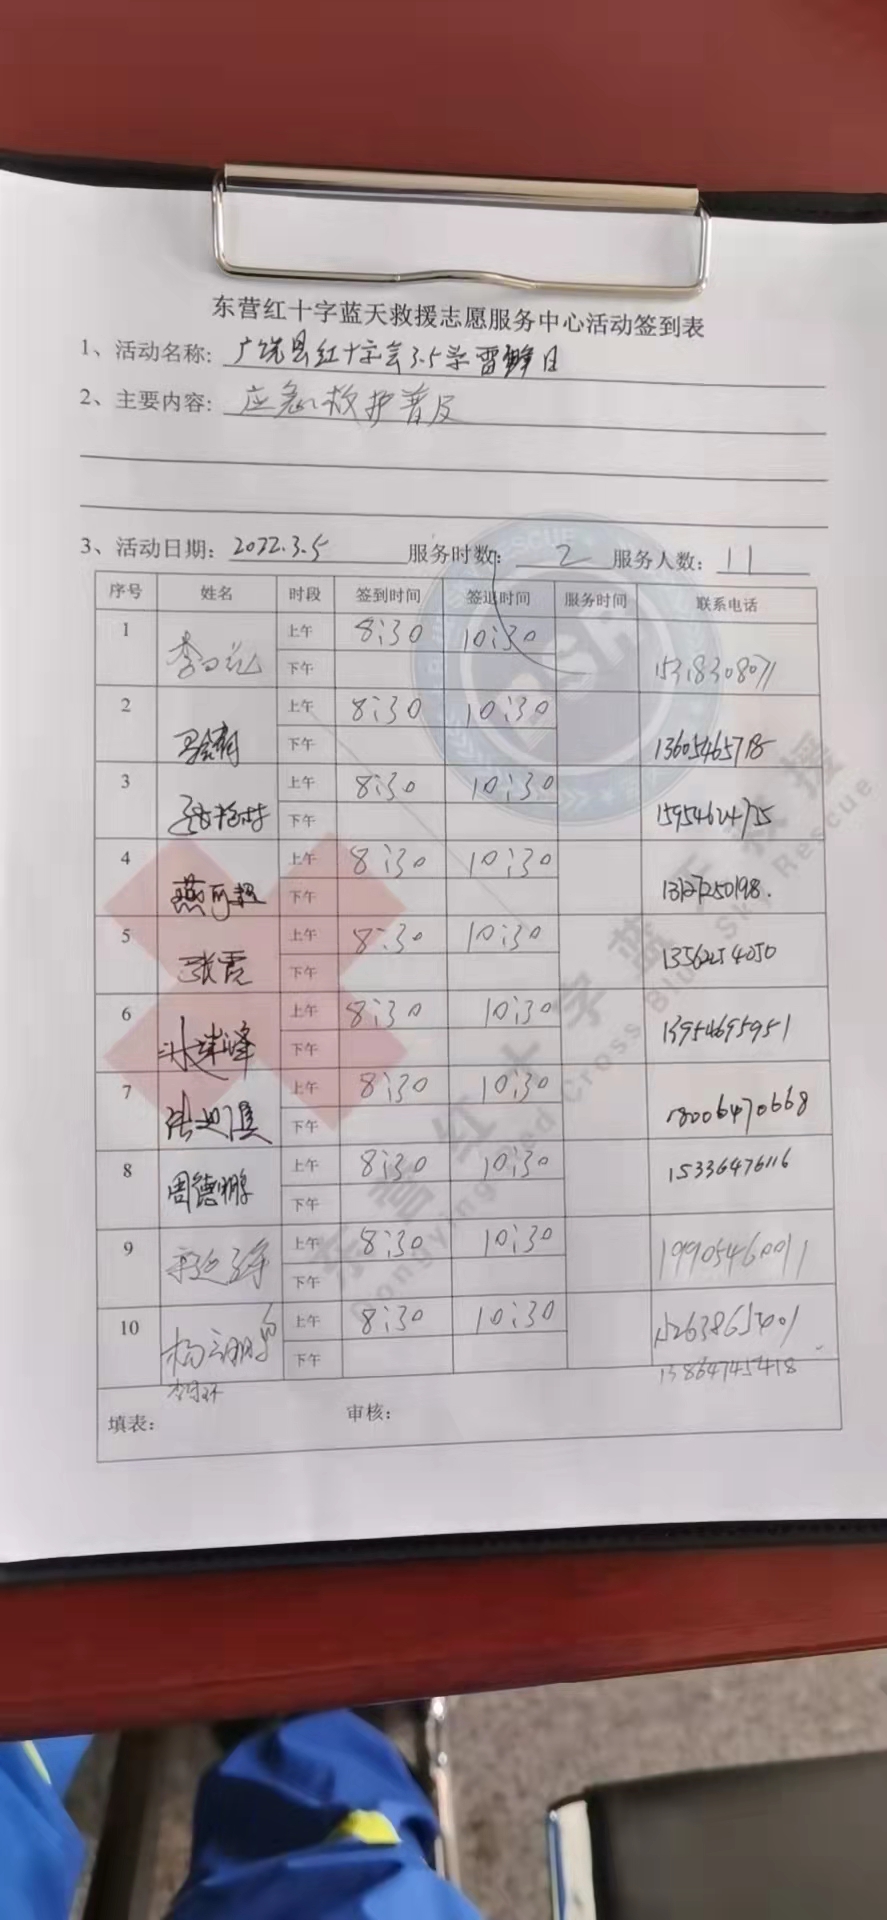 东营红十字蓝天救援志愿服务中心活动签到表
1、活动名称: 广饶县红十字会3.5学雷锋日
2、主要内容: 应急救护普及
3、活动日期: 2022.3.5 服务时数: 2 服务人数: 11
序号 姓名 时段 签到时间 签退时间 服务时间 联系电话
1 上午 8:30 10:30
下午 15318308071
2 上午 8:30 10:30
下午 13605465718
3 上午 8:30 10:30
下午 15954624755
4 上午 8:30 10:30
燕 下午 13127250198.
5 上午 8:30 10:30
张霞 下午 13562254050
6 上午 8:30 10:30
峰 下午 13954695951
7 上午 8:30 10:30
张 下午 18006470668
8 上午 8:30 10:30 15336476116
周德鹏 下午
9 上午 8:30 10:30
下午 19905460011
10 上午 8:30 10:30
杨 下午 15263865401
13864745418
填表: 审核:
东营红十字蓝天救援
Dongying Red Cross Blue Sky Rescue